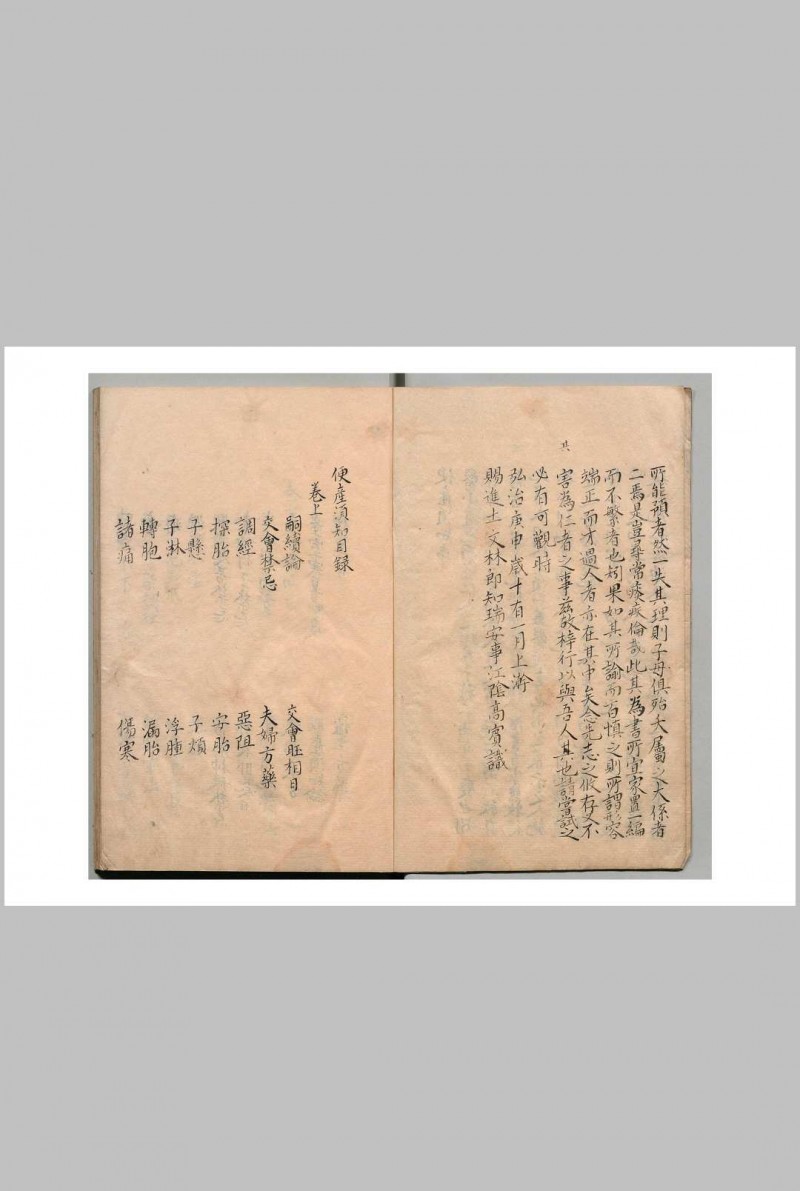 所能預者然一失其理則子母俱殆大屬之大係者
二焉是豈尋常痰疾倫哉此其為書所宜家置一編
而不繁者也矧果如其所論而百慎之則所謂形容
端正而才過人者亦在其中矣念先志之攸存又不
害為仁者之事茲故梓行以與吾人共也請嘗試之
共
必有可觀時
弘治庚申歲十有一月上澣
賜進士文林郎知瑞安事江陰高賓識
便產須知目錄
卷上
嗣續論 交會旺相日
交會禁忌 夫婦方藥
調經 惡阻
探胎 安胎
子懸 子煩
子淋 浮腫
轉胞 漏胎
諸痛 傷寒